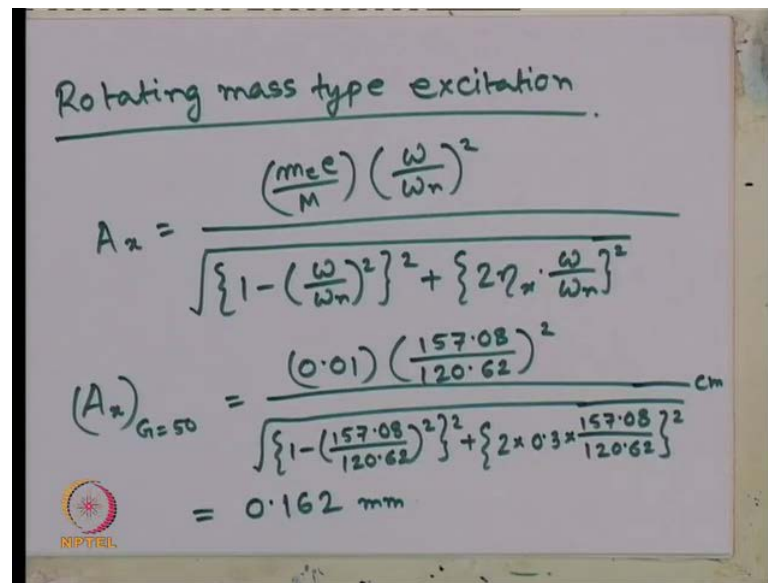 Rotating mass type excitation.
A_x = ((m_e e / M) (ω/ω_n)^2) / √({1-(ω/ω_n)^2}^2 + {2η_x · ω/ω_n}^2)
(A_x)_{G=50} = ((0.01) (157.08/120.62)^2) / √({1-(157.08/120.62)^2}^2 + {2×0.3×157.08/120.62}^2) cm
= 0.162 mm
NPTEL